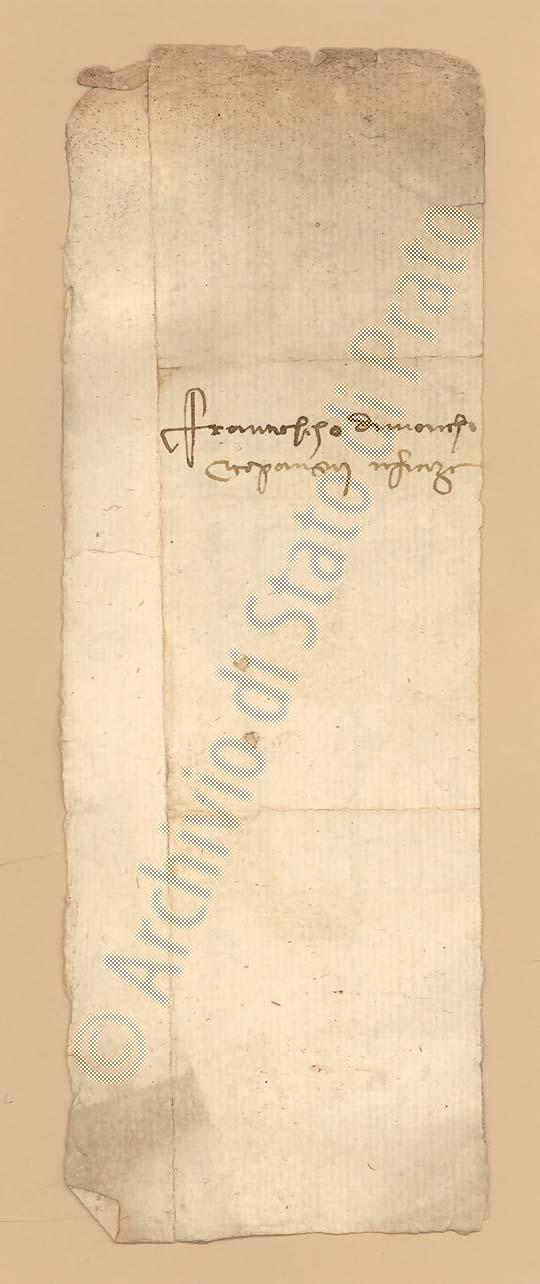 Franciescho di Marcho
e conpangni in Firenze
© Archivio di Stato di Prato